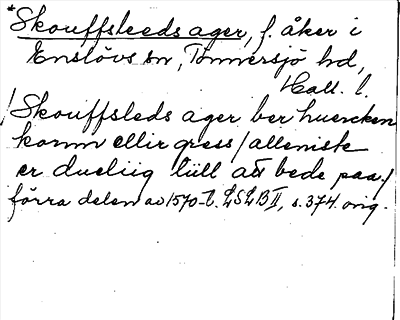 *Skouffsleeds ager, f. åker i
Enslövs sn, Tönnersjö hd,
Hall. l.
/Skouffsleds ager ber huercken
kornn ellir gress/alleniste
er dueliig tiill att bede paa./
förra delen av 1570-t. LSLB II, s. 374. orig.